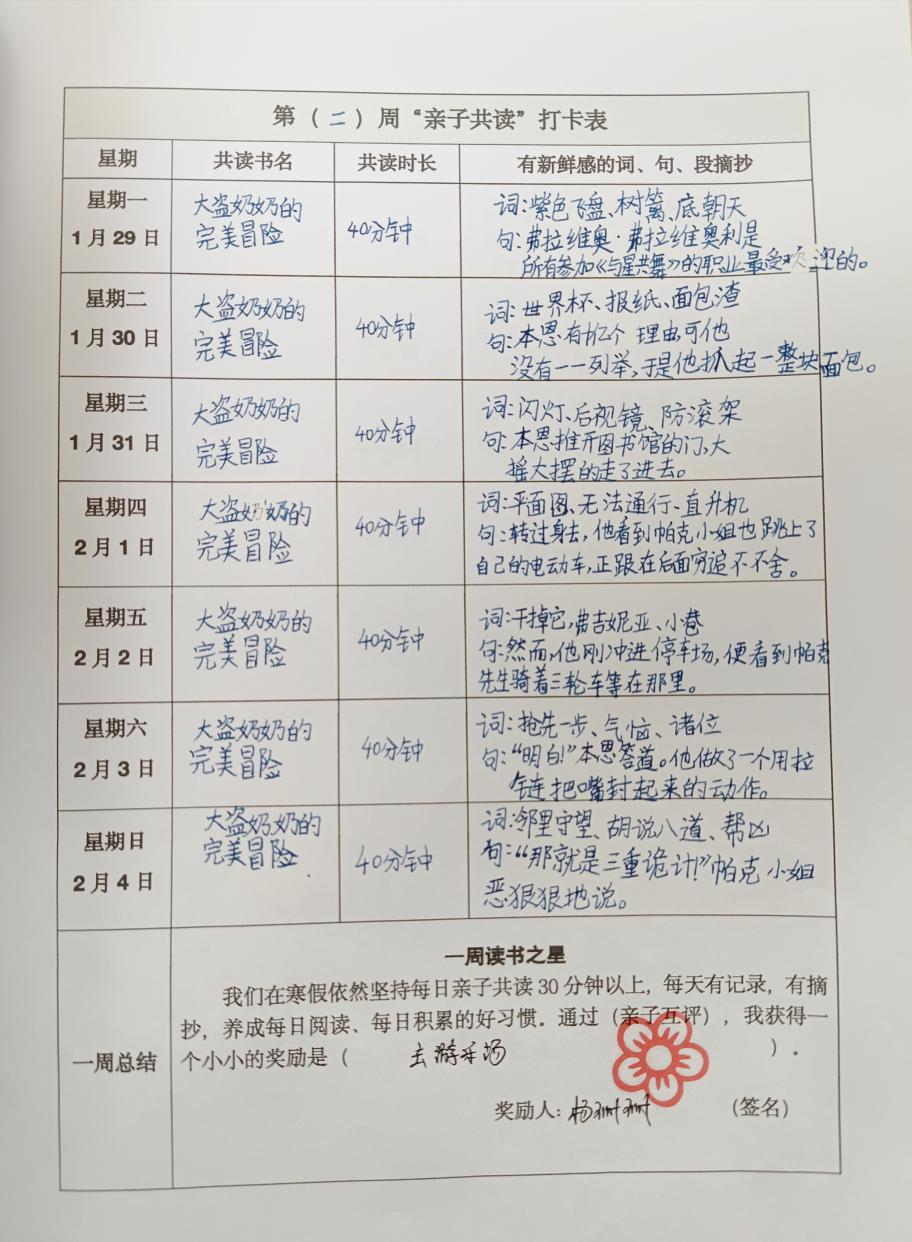 第（二）周“亲子共读”打卡表
星期 共读书名 共读时长 有新鲜感的词、句、段摘抄
星期一
1月29日
大盗奶奶的
完美冒险
40分钟
词:紫色飞盘、树篱、底朝天
句:弗拉维奥·弗拉维奥利是
所有参加《与星共舞》的职业最受欢迎的。
星期二
1月30日
大盗奶奶的
完美冒险
40分钟
词:世界杯、报纸、面包渣
句:本恩有亿个理由,可他
没有一一列举,于是他抓起一整块面包。
星期三
1月31日
大盗奶奶的
完美冒险
40分钟
词:闪灯、后视镜、防滚架
句:本恩推开图书馆的门,大
摇大摆的走了进去。
星期四
2月1日
大盗奶奶的
完美冒险
40分钟
词:平面图、无法通行、直升机
句:转过身去,他看到帕克小姐也跳上了
自己的电动车,正跟在后面穷追不不舍。
星期五
2月2日
大盗奶奶的
完美冒险
40分钟
词:干掉它,弗吉妮亚、小巷
句:然而,他刚冲进停车场,便看到帕克
先生骑着三轮车等在那里。
星期六
2月3日
大盗奶奶的
完美冒险
40分钟
词:抢先一步、气恼、诸位
句:“明白!”本恩答道。他做了一个用拉
链把嘴封起来的动作。
星期日
2月4日
大盗奶奶的
完美冒险
40分钟
词:邻里守望、胡说八道、帮凶
句:“那就是三重诡计!”帕克小姐
恶狠狠地说。
一周总结
一周读书之星
我们在寒假依然坚持每日亲子共读30分钟以上，每天有记录，有摘
抄，养成每日阅读、每日积累的好习惯．通过（亲子互评），我获得一
个小小的奖励是（ 去游乐场 ）．
奖励人: 杨（签名）